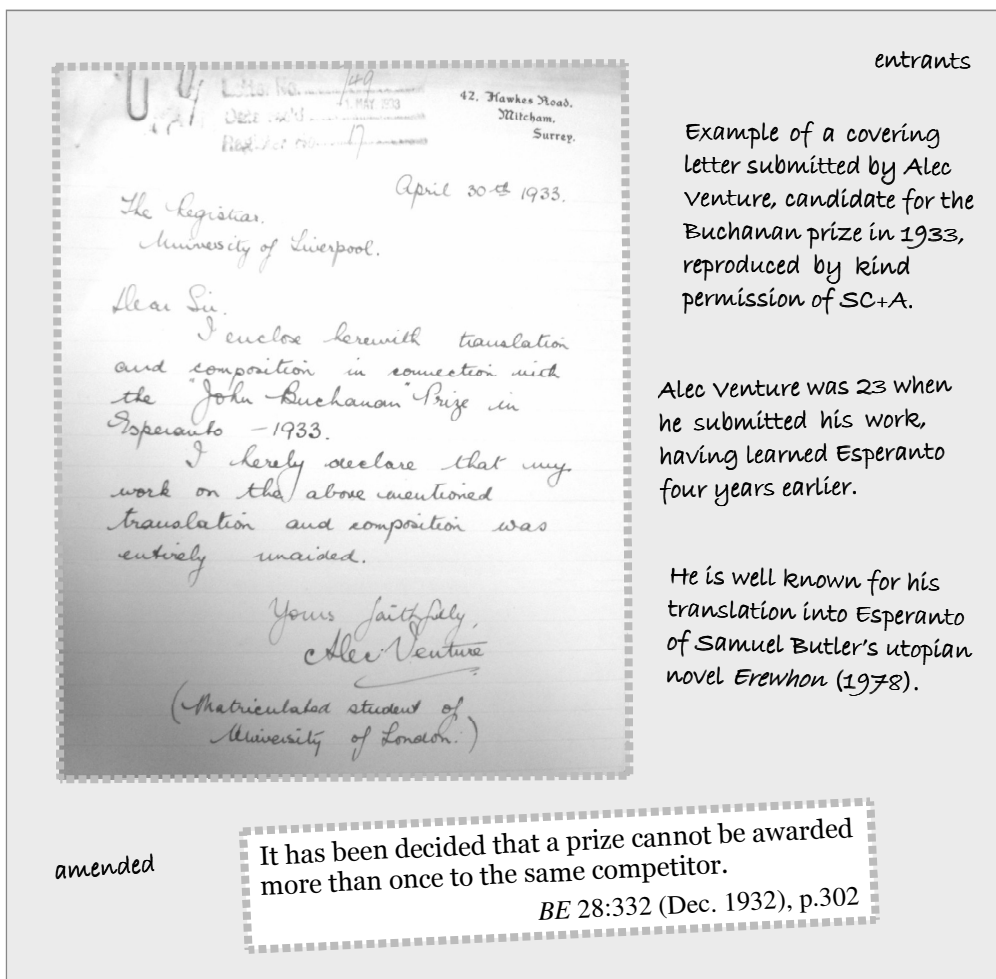 entrants
Letter No. 149
Date rec'd 1. MAY 1933
Register No. 17
42, Hawkes Road,
Mitcham,
Surrey.
April 30th 1933.
The Registrar.
University of Liverpool.
Dear Sir.
I enclose herewith translation
and composition in connection with
the "John Buchanan" Prize in
Esperanto – 1933.
I hereby declare that my
work on the above mentioned
translation and composition was
entirely unaided.
Yours faithfully,
Alec Venture
(Matriculated student of
University of London.)
Example of a covering
letter submitted by Alec
Venture, candidate for the
Buchanan prize in 1933,
reproduced by kind
permission of SC+A.
Alec Venture was 23 when
he submitted his work,
having learned Esperanto
four years earlier.
He is well known for his
translation into Esperanto
of Samuel Butler's utopian
novel Erewhon (1978).
amended
It has been decided that a prize cannot be awarded
more than once to the same competitor.
BE 28:332 (Dec. 1932), p.302